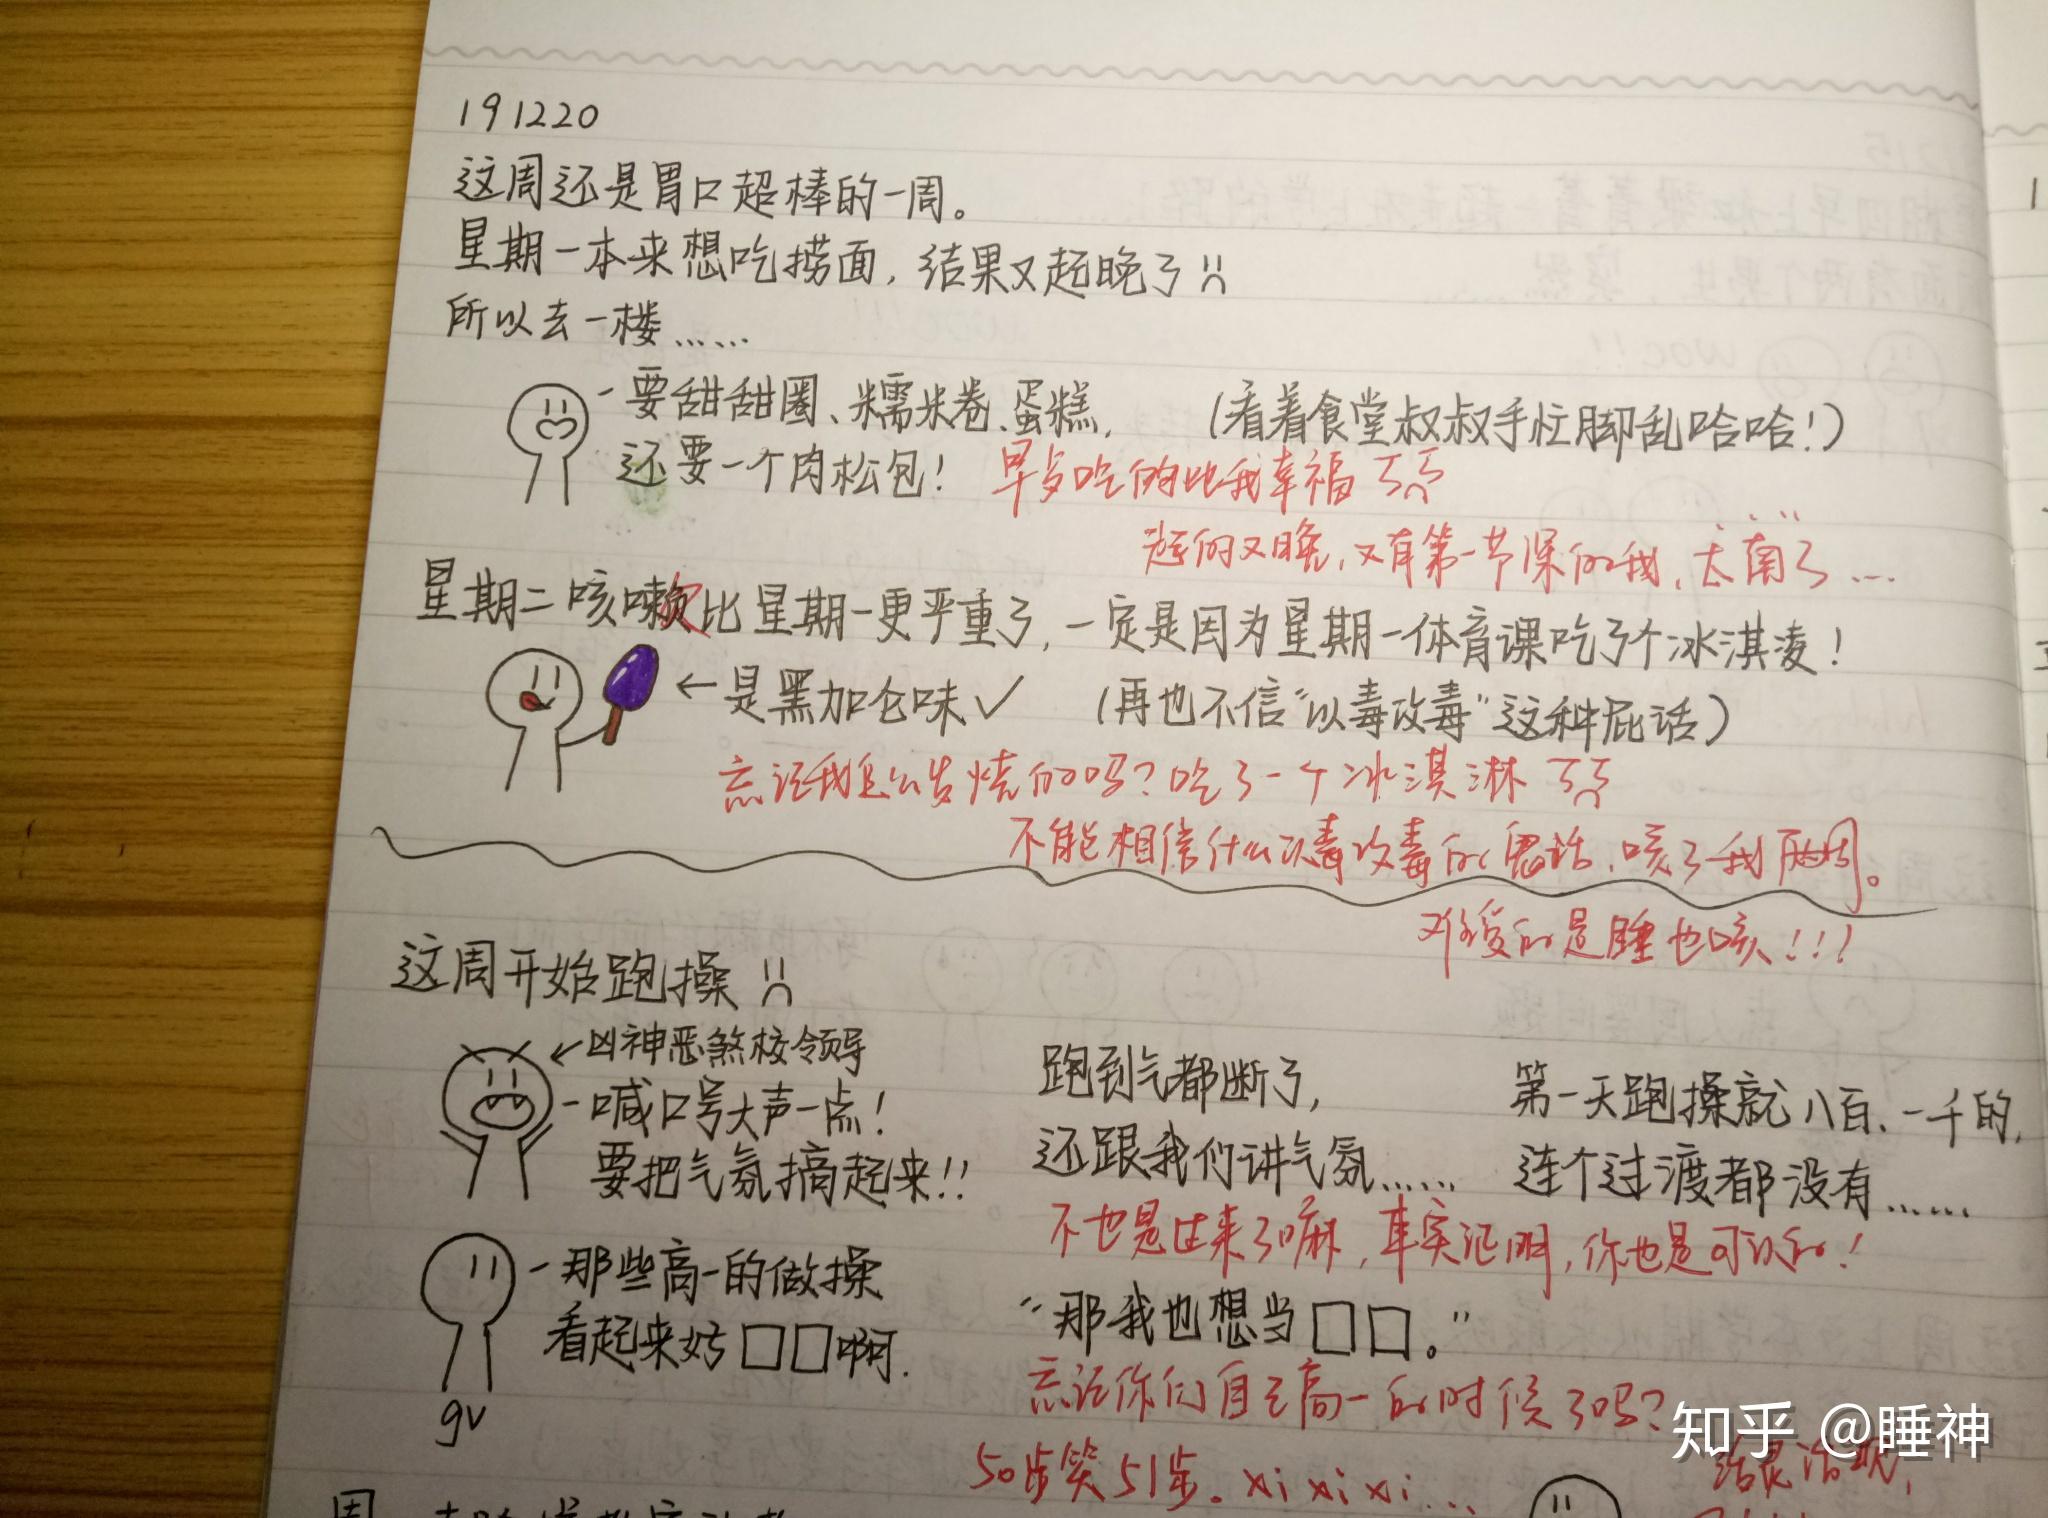 191220
这周还是胃口超棒的一周。
星期一本来想吃捞面，结果又起晚了
所以去一楼……
-要甜甜圈、糯米卷、蛋糕，
还要一个肉松包！
（看着食堂叔叔手忙脚乱哈哈！）
早乡吃的比我幸福
起的又晚，又有第一节课的我，太南了…
星期二咳嗽比星期一更严重了，一定是因为星期一体育课吃了个冰淇凌！
←是黑加仑味✓
（再也不信“以毒攻毒”这种屁话）
忘记我怎么发烧的吗？吃了一个冰淇淋
不能相信什么以毒攻毒的鬼话，咳了我两周。
难受的是睡也咳！！！
这周开始跑操
←凶神恶煞校领导
-喊口号大声一点！
要把气氛搞起来！！
跑到气都断了，
还跟我们讲气氛……
第一天跑操就八百、一千的，
连个过渡都没有……
不也是过来了嘛，事实证明，你也是可以的！
-那些高一的做操
看起来好□□啊.
gv
“那我也想当□□。”
忘记你们自己高一的时候了吗？
50步笑51步。xi xi xi…
知乎 @睡神